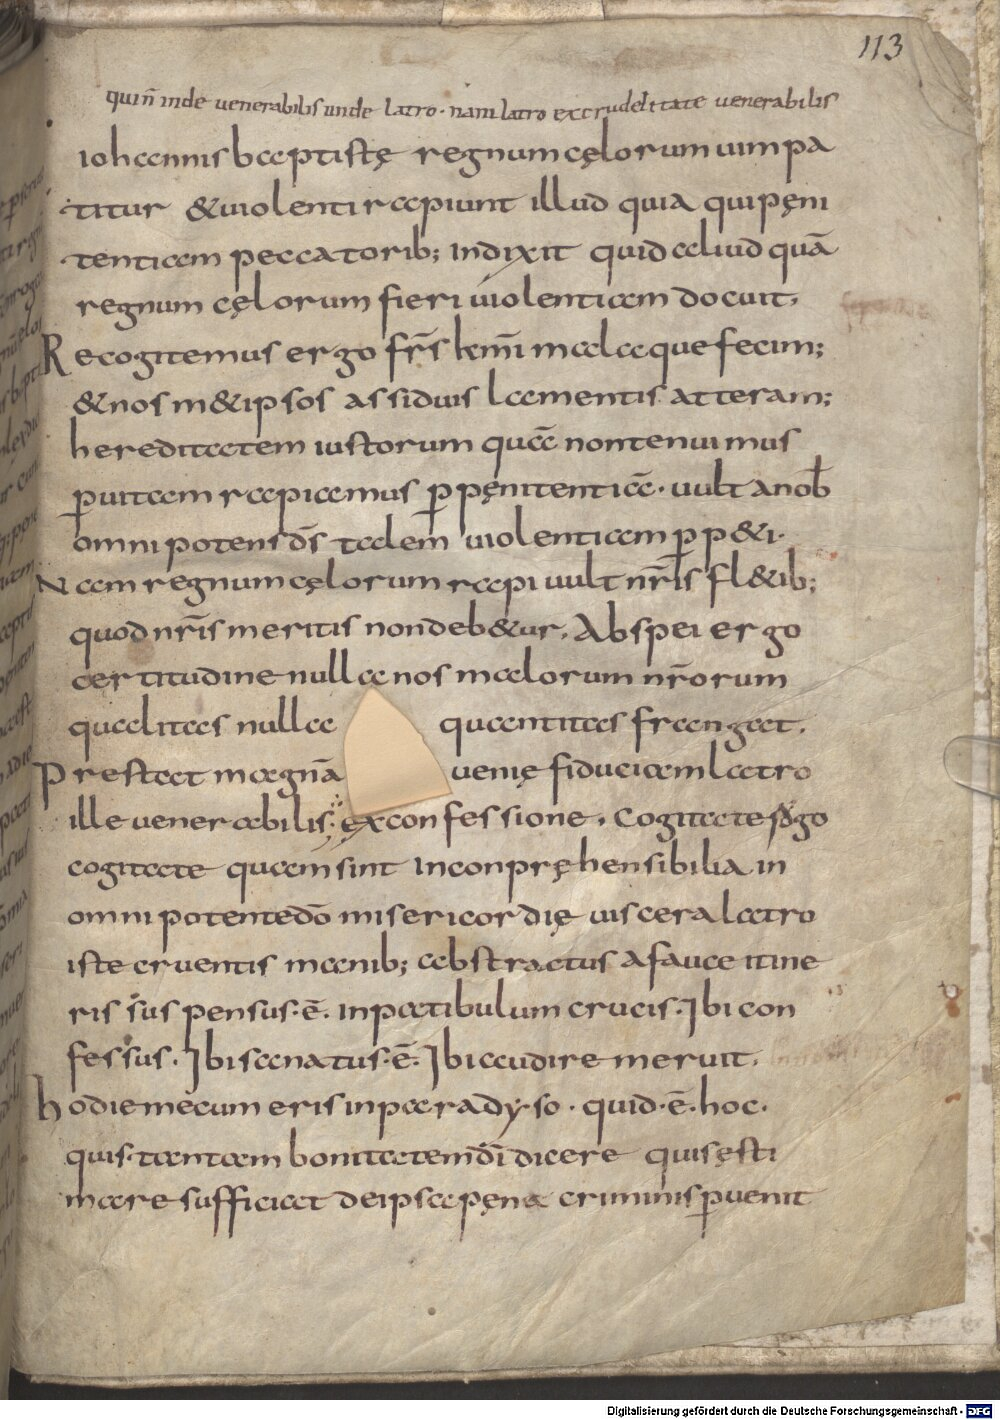 113
qui n̄ inde uenerabilis unde latro· nam latro ex crudelitate uenerabilis
iohannis baptistę regnum cęlorum uim pa
titur &uiolenti rapiunt illud quia qui pęni
tentiam peccatorib; indixit quid aliud quā
regnum cęlorum fieri uiolentiam docuit.
Recogitemus ergo fr̄s km̄i mala que fecim;
&nos m&ipsos assiduis lamentis atteram;
hereditatem iustorum quā non tenuimus
p̱ uitam rapiamus p̱ pęnitentiā· uult a nob̄
omnipotens d̄s talem uiolentiam p̱p&i·
Nam regnum cęlorum rapi uult nr̄is fl&ib;
quod nr̄is meritis non deb&ur. Ab spei ergo
certitudine nulla nos malorum nr̄orum
qualitas nulla quantitas frangat.
Prestat magnā uenię fiduciam latro
ille uenerabilis· ex confessione. Cogitate ergo
cogitate quam sint inconpręhensibilia in
omnipotente dō misericordię uiscera latro
iste cruentis manib; abstractus a fauce itine
ris suspensus·ē· in patibulum crucis. Ibi con
fessus. Ibi sanatus·ē· Ibi audire meruit.
hodie mecum eris in paradyso· quid·ē·hoc·
quis tantam bonitatem dī dicere quis ęsti
mare sufficiat de ipsa pęna criminis p̱uenit
Digitalisierung gefördert durch die Deutsche Forschungsgemeinschaft - DFG